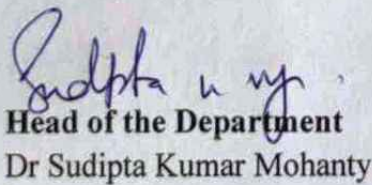 Sudipta
Head of the Department
Dr Sudipta Kumar Mohanty